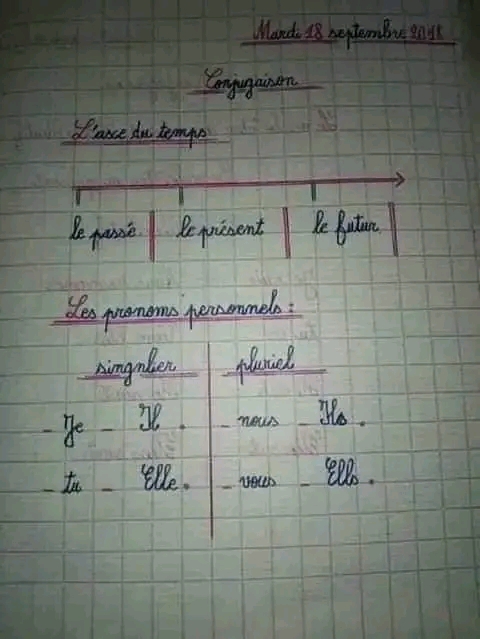 Mardi 18 septembre 2018
Conjugaison
L'asce du temps
le passé le présent le futur
Les pronoms personnels :
singnlier pluriel
- Je - Il . - nous - Ils .
- tu - Elle . - vous - Ells .